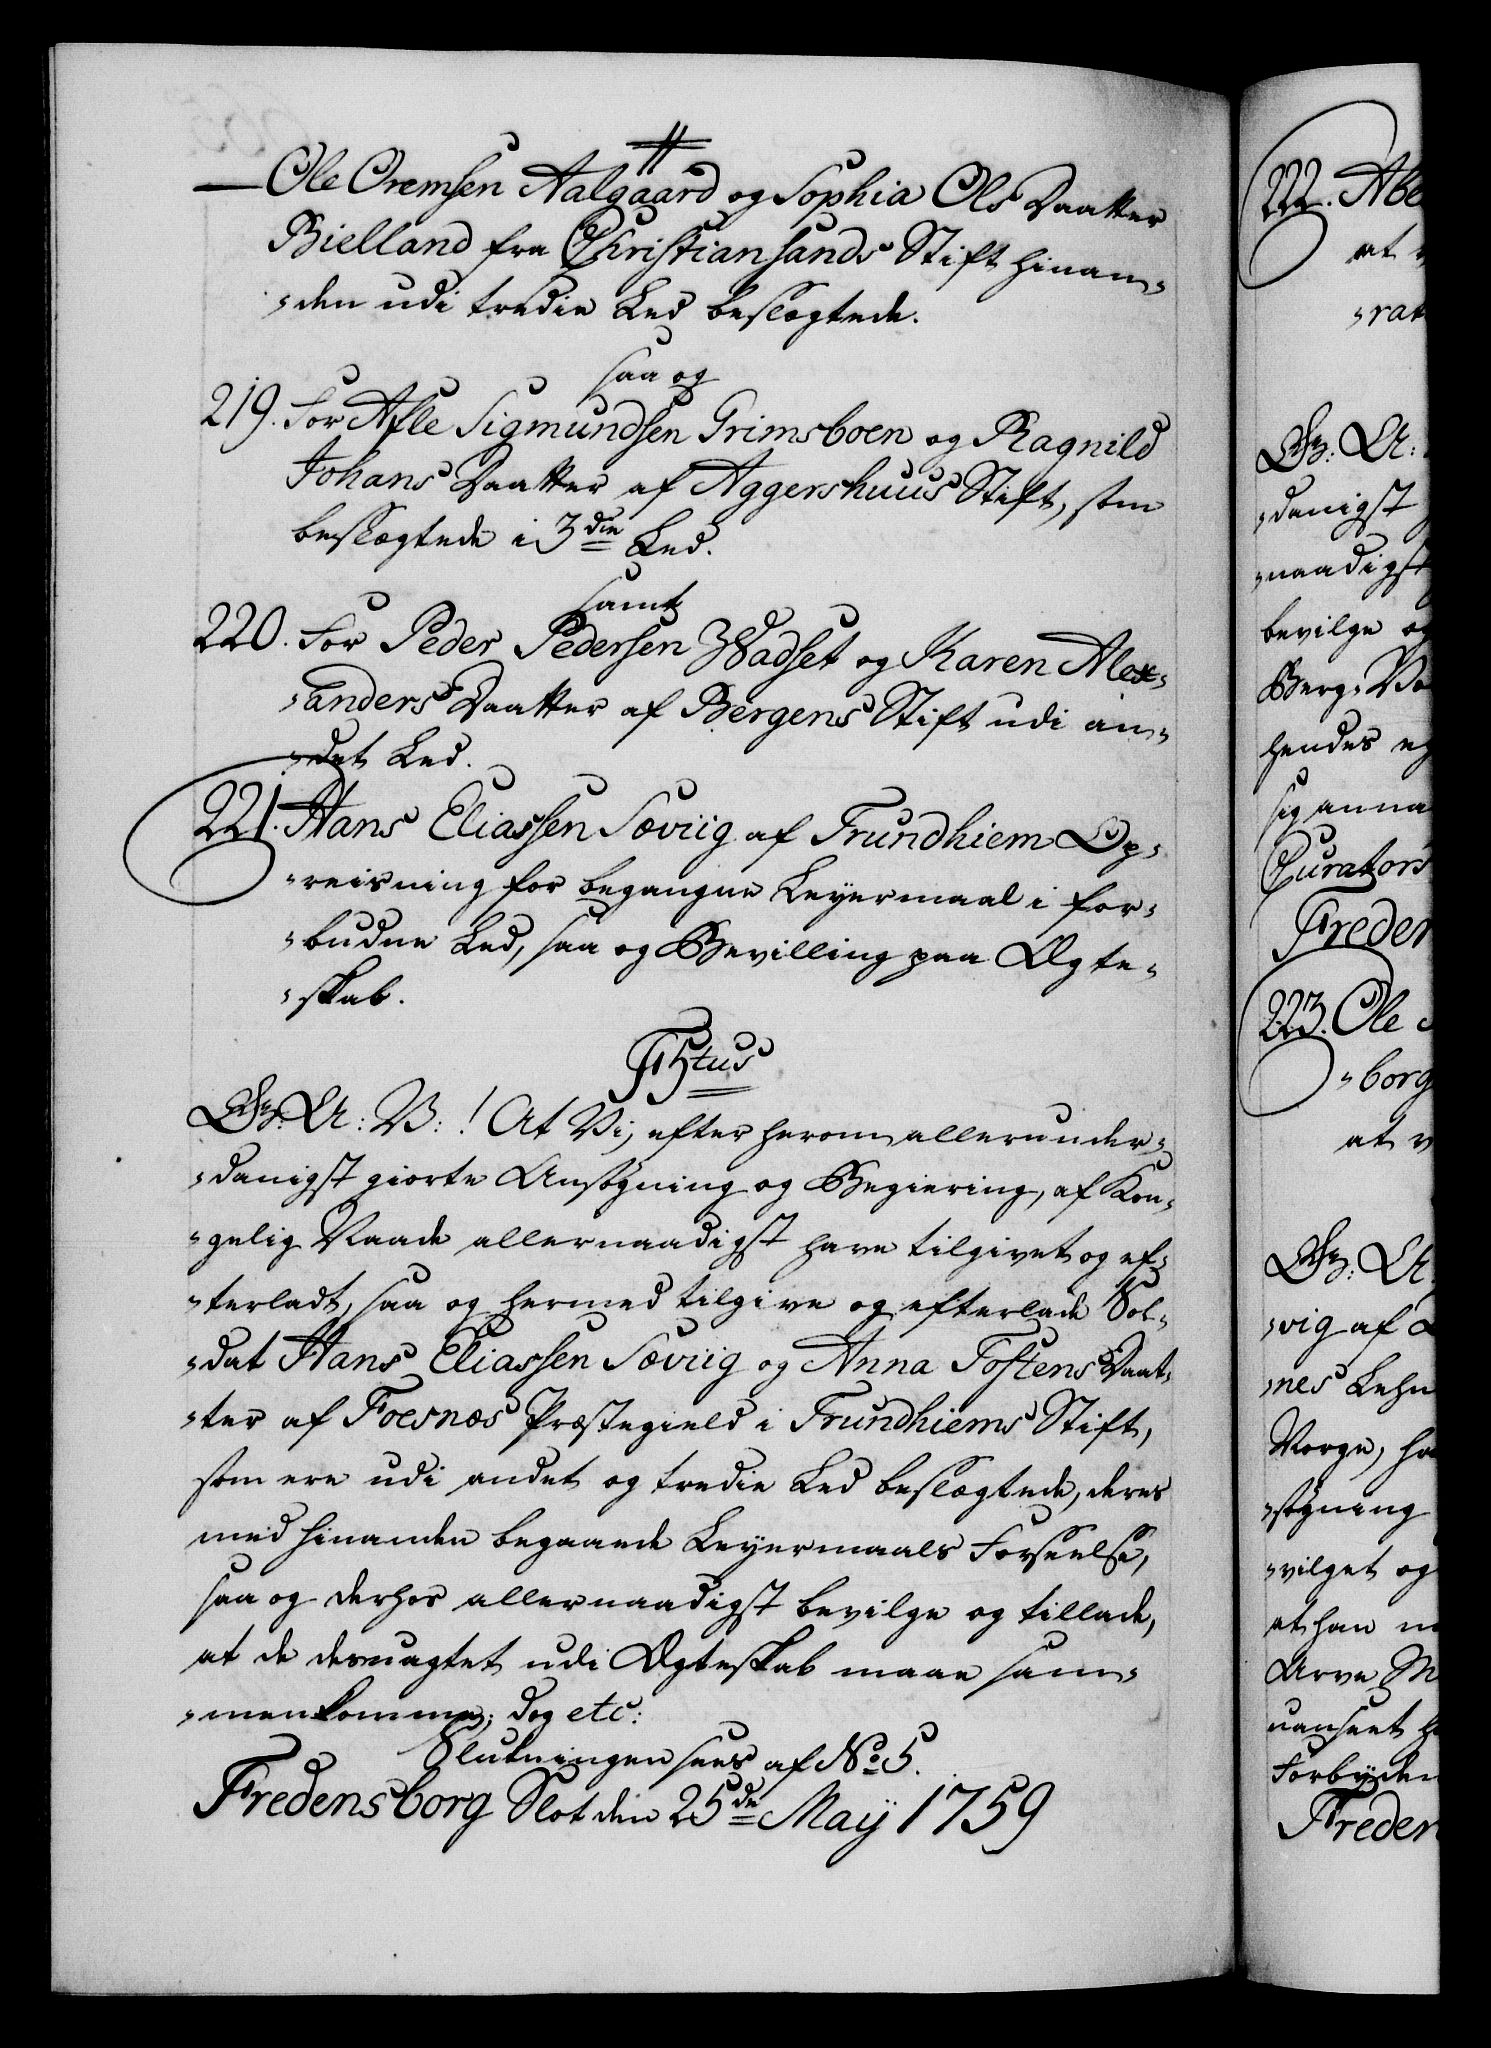 Ole Oremsen Aalgaard og Sophia Ols Daatter
Bielland fra Christiansands Stift hinan-
-den udi tredie Led beslægtede.
saa og
219. For Asle Sigmundsen Grimsboen og Ragnild
Johans Daatter af Aggershuus Stift, som
beslægtede i 3die Led.
samt
220. For Peder Pedersen Wadset og Karen Alex-
-anders Daatter af Bergens Stift udi an-
-det Led.
221. Hans Eliassen Sæviig af Trundhiem Op-
-reisning for begangne Leyermaal i for-
-budne Led, saa og Bevilling paa Ægte-
-skab.
F5tus
Gr: A: V: ! At Vi, efter herom allerunder-
-danigst giorte Ansøgning og Begiering, af Kon-
-gelig Naade allernaadigst have tilgivet og ef-
-terladt, saa og hermed tilgive og efterlade Sol-
-dat Hans Eliassen Sæviig og Anna Tostens Daat-
-ter af Foesnæs Præstegield i Trundhiems Stift,
som ere udi andet og tredie Led beslægtede, deres
med hinanden begaaede Leyermaals Forseelse,
saa og derhos allernaadigst bevilge og tillade,
at de desuagtet udi Ægteskab maae sam-
-menkomme; dog etc:
Slutningen sees af No 5.
Fredensborg Slot den 25de Maij 1759
222. Abe
at
-rat
Gr: A:
-danigst
-naadigst
bevilge og
Berg-
hendes
sig anna
Curators
Freden
223. Ole
-borg
at
Gr: A
-vig af
-nes Lehn
Norge, ha
-søgning
-vilget og
at han
Arve
uanseet
Forbyden
Freden